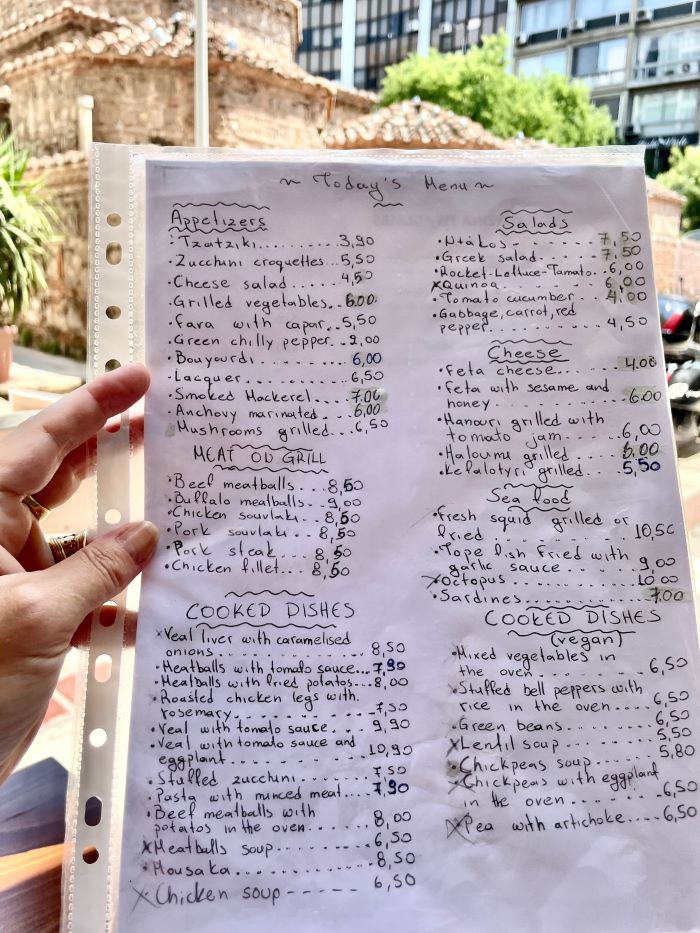 ~ Today's Menu ~
Appetizers
· Tzatziki......... 3,90
· Zucchini croquettes... 5,50
· Cheese salad..... 4,50
· Grilled vegetables.. 6.00
· Fava with capar.. 5,50
· Green chilly pepper.. 2,00
· Bouyourdi 6,00
· Lacquer........... 6,50
· Smoked Mackerel... 7.00
· Anchovy marinated... 6,00
· Mushrooms grilled... 6,50
MEAT ON GRILL
· Beef meatballs... 8,50
· Buffalo meatballs.. 9,00
· Chicken souvlaki.. 8,50
· Pork souvlaki... 8,50
· Pork steak.... 8,50
· Chicken fillet... 8,50
COOKED DISHES
x Veal liver with caramelised
onions................. 8,50
· Meatballs with tomato sauce... 7,90
· Meatballs with fried potatos... 8,00
· Roasted chicken legs with
rosemary.............. 7,50
· Veal with tomato sauce... 9,90
· Veal with tomato sauce and
eggplant............. 10,90
· Stuffed zucchini........ 7,50
· Pasta with minced meat.... 7,90
· Beef meatballs with
potatos in the oven...... 8,00
x Meatballs soup........ 6,50
· Mousaka............. 8,50
x Chicken soup ----- 6,50
Salads
· Ntákos - ....... 7,50
· Greek salad....... 7,50
· Rocket-Lettuce-Tamato.. 6,00
x Quinoa......... 6,00
· Tomato cucumber.. 4,00
· Gabbage, carrot, red
pepper............ 4,50
Cheese
· Feta cheese...... 4.00
· Feta with sesame and
honey............. 6.00
· Manouri grilled with
tomato jam..... 6,00
· Haloumi grilled.... 6,00
· Kefalotyri grilled.... 5,50
Sea food
· Fresh squid grilled or
fried............ 10,50
· Tope fish fried with
garlic sauce...... 9,00
x Octopus......... 10,00
· Sardines.......... 7.00
COOKED DISHES
(vegan)
· Mixed vegetables in
the oven........... 6,50
· Stuffed bell peppers with
rice in the oven.... 6,50
· Green beans....... 6,50
x Lentil soup........ 5,50
· Chickpeas soup...... 5,80
x Chickpeas with eggplant
in the oven......... 6,50
x Pea with artichoke..... 6,50